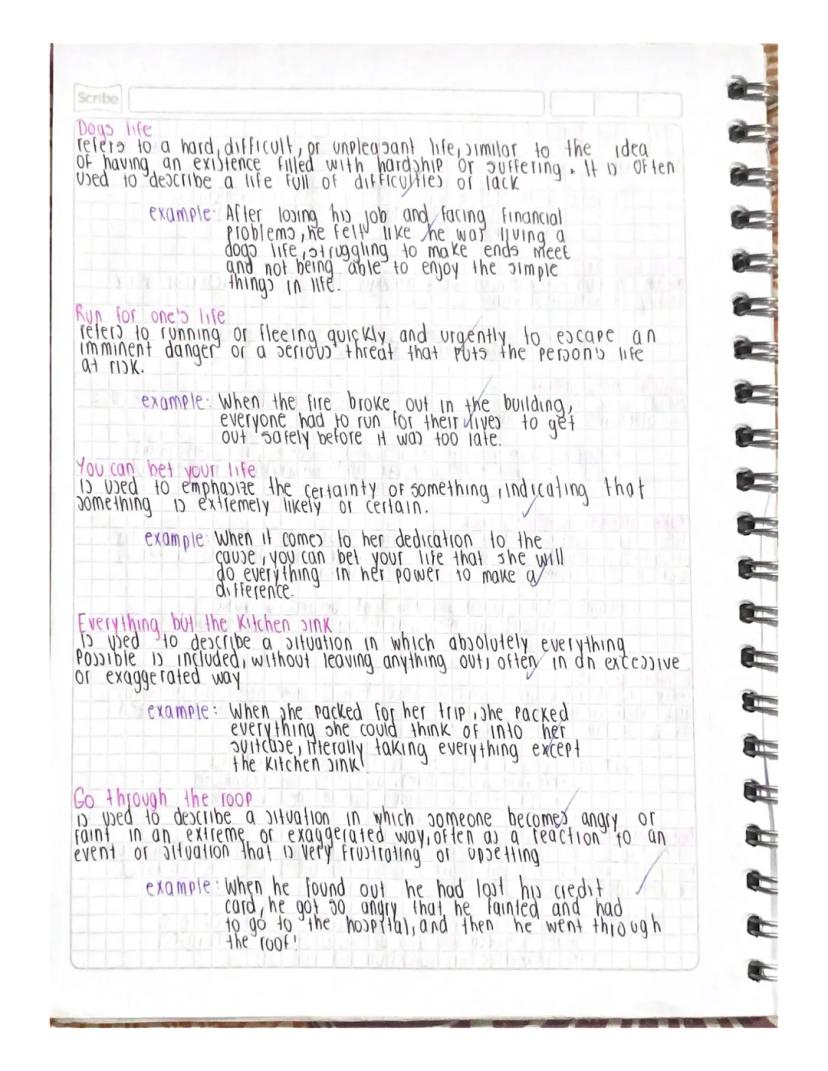 Scribe
Dogs life
refers to a hard, difficult, or unpleasant life, similar to the idea
of having an existence filled with hardship or suffering. It is often
used to describe a life full of difficulties or lack
example: After losing his job and facing financial
problems, he felt like he was living a
dogs life, struggling to make ends meet
and not being able to enjoy the simple
things in life.
Run for one's life
refers to running or fleeing quickly and urgently to escape an
imminent danger or a serious threat that puts the person's life
at risk.
example: When the fire broke out in the building,
everyone had to run for their lives to get
out safely before it was too late.
You can bet your life
is used to emphasize the certainty of something, indicating that
something is extremely likely or certain.
example: When it comes to her dedication to the
cause, you can bet your life that she will
do everything in her power to make a
difference.
Everything but the kitchen sink
is used to describe a situation in which absolutely everything
possible is included, without leaving anything out, often in an excessive
or exaggerated way
example: When she packed for her trip, she packed
everything she could think of into her
suitcase, literally taking everything except
the kitchen sink!
Go through the roop
is used to describe a situation in which someone becomes angry or
faint in an extreme or exaggerated way, often as a reaction to an
event or situation that is very frustrating or upsetting
example: When he found out he had lost his credit
card, he got so angry that he fainted and had
to go to the hospital, and then he went through
the roof!